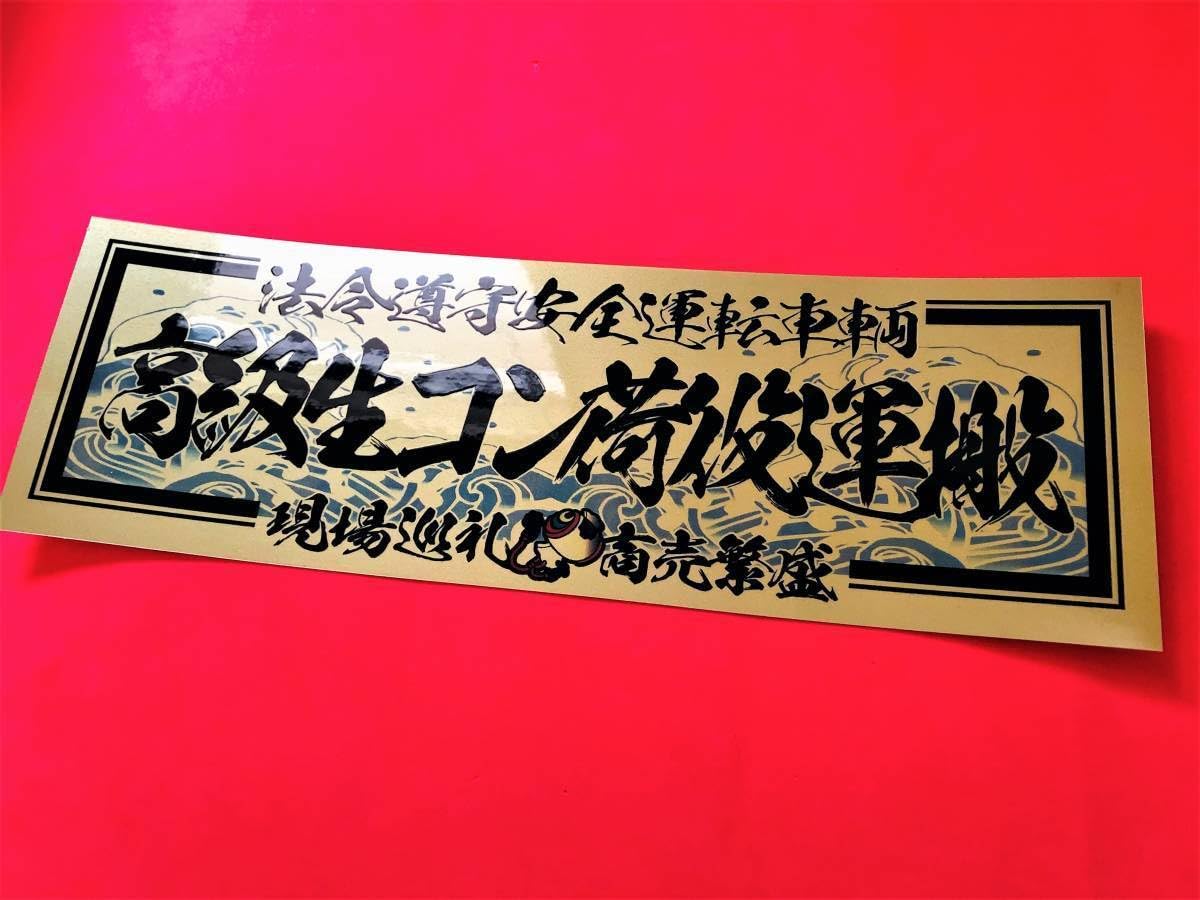 法令遵守安全運転車輌
高級生コン荷役運搬
現場巡礼 商売繁盛